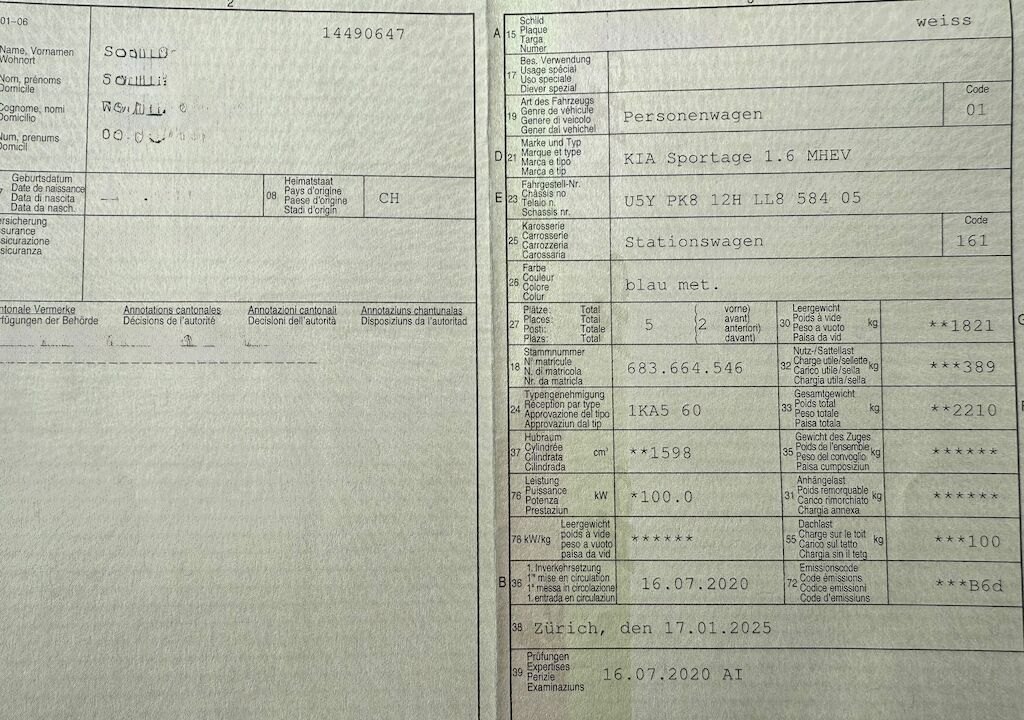 2
01-06
14490647
Name, Vornamen
Wohnort
Nom, prénoms
Domicile
Cognome, nomi
Domicilio
Num, prenums
Domicil
Geburtsdatum
Date de naissance
Data di nascita
Data da nasch.
08
Heimatstaat
Pays d'origine
Paese d'origine
Stadi d'origin
CH
ersicherung
surance
sicurazione
sicuranza
ntonale Vermerke
rfügungen der Behörde
Annotations cantonales
Décisions de l'autorité
Annotazioni cantonali
Decisioni dell'autorità
Annotaziuns chantunalas
Disposiziuns da l'autoritad
A 15
Schild
Plaque
Targa
Numer
weiss
17
Bes. Verwendung
Usage spécial
Uso speciale
Diever spezial
19
Art des Fahrzeugs
Genre de véhicule
Genere di veicolo
Gener dal vehichel
Personenwagen
Code
01
D 21
Marke und Typ
Marque et type
Marca e tipo
Marca e tip
KIA Sportage 1.6 MHEV
E 23
Fahrgestell-Nr.
Châssis no
Telaio n.
Schassis nr.
U5Y PK8 12H LL8 584 05
25
Karosserie
Carrosserie
Carrozzeria
Carossaria
Stationswagen
Code
161
26
Farbe
Couleur
Colore
Colur
blau met.
27
Plätze: Total
Places: Total
Posti: Totale
Plazs: Total
5
(2
vorne)
avant)
anteriori)
davant)
30
Leergewicht
Poids à vide
Peso a vuoto
Paisa da vid
kg
**1821
18
Stammnummer
N° matricule
N. di matricola
Nr. da matricla
683.664.546
32
Nutz-/Sattellast
Charge utile/sellette
Carico utile/sella
Chargia utila/sella
kg
***389
24
Typengenehmigung
Réception par type
Approvazione del tipo
Approvaziun dal tip
1KA5 60
33
Gesamtgewicht
Poids total
Peso totale
Paisa totala
kg
**2210
37
Hubraum
Cylindrée
Cilindrata
Cilindrada
cm³
**1598
35
Gewicht des Zuges
Poids de l'ensemble
Peso del convoglio
Paisa cumposiziun
kg
******
76
Leistung
Puissance
Potenza
Prestaziun
kW
*100.0
31
Anhängelast
Poids remorquable
Carico rimorchiato
Chargia annexa
kg
******
78 kW/kg
Leergewicht
poids à vide
peso a vuoto
paisa da vid
******
55
Dachlast
Charge sur le toit
Carico sul tetto
Chargia sin il tetg
kg
***100
B 36
1. Inverkehrsetzung
1re mise en circulation
1a messa in circolazione
1. entrada en circulaziun
16.07.2020
72
Emissionscode
Code émissions
Codice emissioni
Code d'emissiuns
***B6d
38
Zürich, den 17.01.2025
39
Prüfungen
Expertises
Perizie
Examinaziuns
16.07.2020 AI